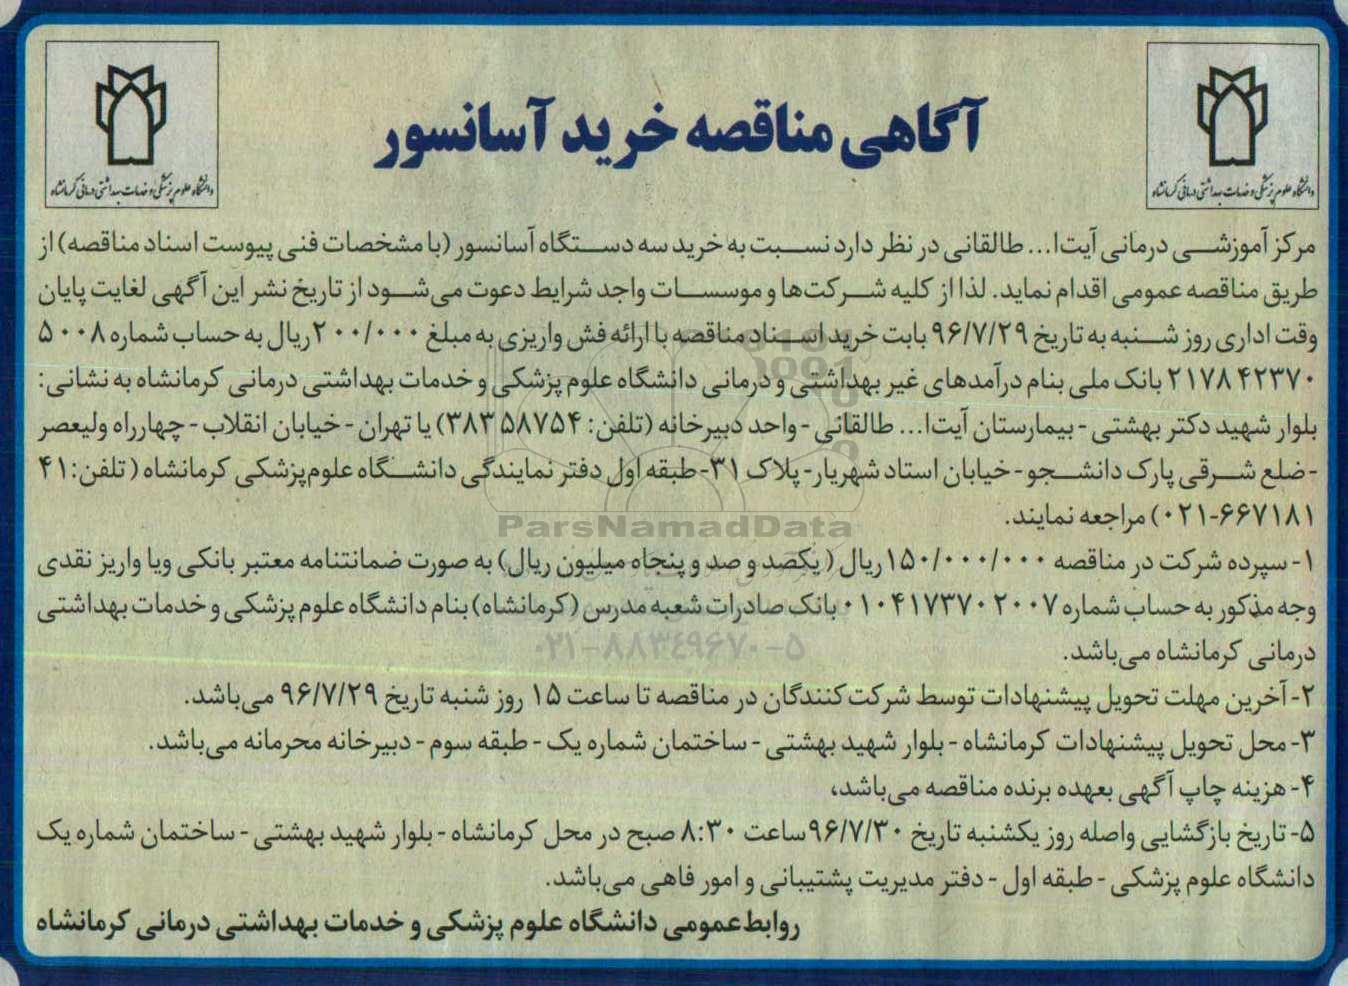 آگاهی مناقصه خرید آسانسور
دانشگاه علوم پزشکی و خدمات بهداشتی درمانی کرمانشاه
دانشگاه علوم پزشکی و خدمات بهداشتی درمانی کرمانشاه
مرکز آموزشی درمانی آیت‌ا... طالقانی در نظر دارد نسبت به خرید سه دستگاه آسانسور (با مشخصات فنی پیوست اسناد مناقصه) از
طریق مناقصه عمومی اقدام نماید. لذا از کلیه شرکت‌ها و موسسات واجد شرایط دعوت می‌شود از تاریخ نشر این آگهی لغایت پایان
وقت اداری روز شنبه به تاریخ ۹۶/۷/۲۹ بابت خرید اسناد مناقصه با ارائه فش واریزی به مبلغ ۲۰۰/۰۰۰ ریال به حساب شماره ۵۰۰۸
۲۱۷۸۴۲۳۷۰ بانک ملی بنام درآمدهای غیر بهداشتی و درمانی دانشگاه علوم پزشکی و خدمات بهداشتی درمانی کرمانشاه به نشانی:
بلوار شهید دکتر بهشتی - بیمارستان آیت‌ا... طالقانی - واحد دبیرخانه (تلفن: ۳۸۳۵۸۷۵۴) یا تهران - خیابان انقلاب - چهارراه ولیعصر
- ضلع شرقی پارک دانشجو - خیابان استاد شهریار - پلاک ۳۱- طبقه اول دفتر نمایندگی دانشگاه علوم‌پزشکی کرمانشاه (تلفن: ۴۱
۰۲۱-۶۶۷۱۸۱) مراجعه نمایند.
۱- سپرده شرکت در مناقصه ۱۵۰/۰۰۰/۰۰۰ ریال (یکصد و صد و پنجاه میلیون ریال) به صورت ضمانتنامه معتبر بانکی ویا واریز نقدی
وجه مذکور به حساب شماره ۰۱۰۴۱۷۳۷۰۲۰۰۷ بانک صادرات شعبه مدرس (کرمانشاه) بنام دانشگاه علوم پزشکی و خدمات بهداشتی
درمانی کرمانشاه می‌باشد.
۲- آخرین مهلت تحویل پیشنهادات توسط شرکت‌کنندگان در مناقصه تا ساعت ۱۵ روز شنبه تاریخ ۹۶/۷/۲۹ می‌باشد.
۳- محل تحویل پیشنهادات کرمانشاه - بلوار شهید بهشتی - ساختمان شماره یک - طبقه سوم - دبیرخانه محرمانه می‌باشد.
۴- هزینه چاپ آگهی بعهده برنده مناقصه می‌باشد،
۵- تاریخ بازگشایی واصله روز یکشنبه تاریخ ۹۶/۷/۳۰ ساعت ۸:۳۰ صبح در محل کرمانشاه - بلوار شهید بهشتی - ساختمان شماره یک
دانشگاه علوم پزشکی - طبقه اول - دفتر مدیریت پشتیبانی و امور فاهی می‌باشد.
روابط‌عمومی دانشگاه علوم پزشکی و خدمات بهداشتی درمانی کرمانشاه
ParsNamadData
۰۲۱-۸۸۳۴۹۶۷۰-۵